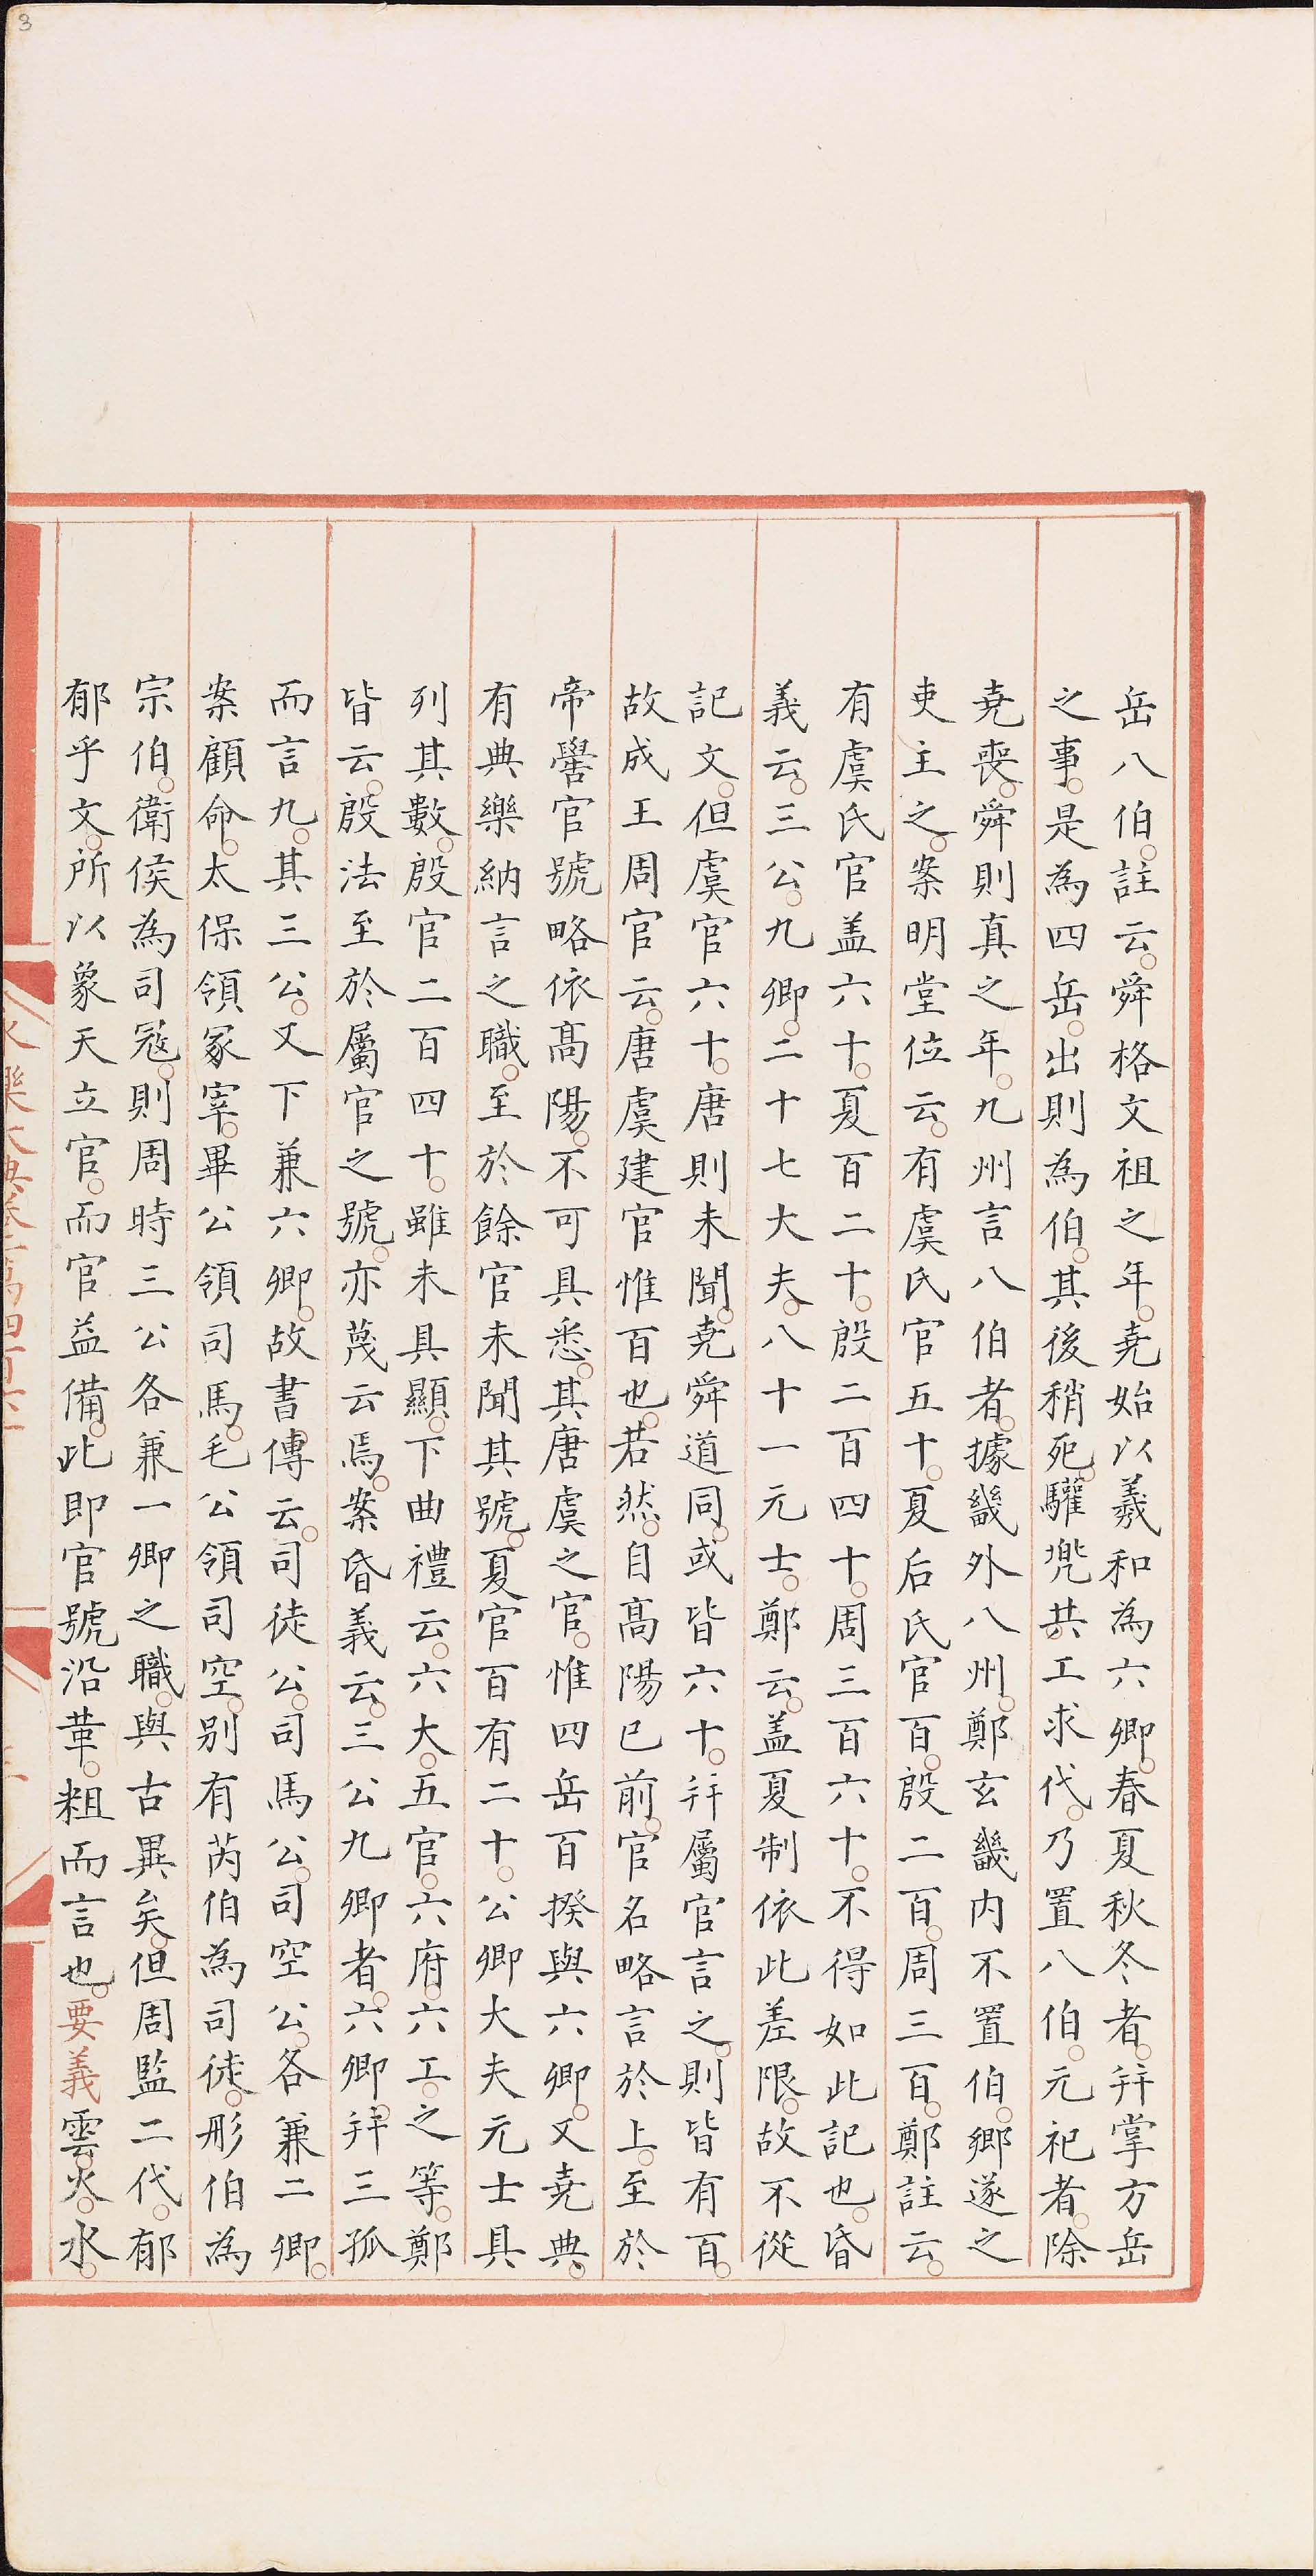 岳八伯。註云。舜格文祖之年。堯始以羲和為六卿。春夏秋冬者。并掌方岳
之事。是為四岳。出則為伯。其後稍死。驩兠共工求代。乃置八伯。元祀者。除
堯喪。舜則真之年。九州言八伯者。據畿外八州。鄭玄畿内不置伯。鄉遂之
吏主之。案明堂位云。有虞氏官五十。夏后氏官百。殷二百。周三百。鄭註云。
有虞氏官盖六十。夏百二十。殷二百四十。周三百六十。不得如此記也。昏
義云。三公。九卿。二十七大夫。八十一元士。鄭云。盖夏制依此差限。故不從
記文。但虞官六十。唐則未聞。堯舜道同。或皆六十。并屬官言之。則皆有百。
故成王周官云。唐虞建官惟百也。若然。自高陽已前。官名略言於上。至於
帝嚳官號略依高陽。不可具悉。其唐虞之官。惟四岳百揆與六卿。又堯典。
有典樂納言之職。至於餘官未聞其號。夏官百有二十。公卿大夫元士具
列其數。殷官二百四十。雖未具顯。下曲禮云。六大。五官。六府。六工。之等。鄭
皆云。殷法至於屬官之號。亦蔑云焉。案昏義云。三公九卿者。六卿。并三孤
而言九。其三公。又下兼六卿。故書傳云。司徒公。司馬公。司空公。各兼二卿。
案顧命。太保領冢宰。畢公領司馬。毛公領司空。别有芮伯為司徒。彤伯為
宗伯。衛侯為司冦。則周時三公各兼一卿之職。與古異矣。但周監二代。郁
郁乎文。所以象天立官。而官益備。此即官號沿革。粗而言也。要義雲。火。水。
永樂大典卷二萬四百六十
3